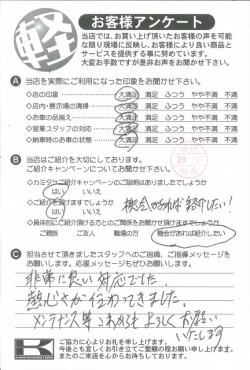 軽
お客様アンケート
当店では、お買い上げ頂いたお客様の声を可能
な限り現場に反映し、お客様により良い商品と
サービスを提供する事に努めています。
大変お手数ですが是非お声をお聞かせ下さい。
A 当店を実際にご利用になった印象をお聞かせ下さい。
◇店の印象 大満足 満足 ふつう やや不満 不満
◇店内・展示場の清掃 大満足 満足 ふつう やや不満 不満
◇お車の品揃え 大満足 満足 ふつう やや不満 不満
◇営業スタッフの対応 大満足 満足 ふつう やや不満 不満
◇納車時のお車の状態 大満足 満足 ふつう やや不満 不満
B 当店はご紹介を大切にしております。
ご紹介キャンペーンについてお聞かせ下さい。
◇カミタケご紹介キャンペーンのご説明はありましたでしょうか
はい いいえ
◇ご紹介を頂けますでしょうか 機会があれば紹介したい!
はい いいえ
◇具体的にご紹介頂ける方とのご関係をお聞かせ頂けますでしょうか
ご親類 ご友人 職場の方 機会があれば紹介したい
C 担当させて頂きましたスタッフへのご指摘、ご指導メッセージを
お願いします。応援メッセージもぜひお願いします。
非常に良い対応でした。
熱心さが伝わってきました。
メンテナンス等これからもよろしくお願い
いたします
K
ご協力に心よりお礼を申し上げます。
今後とも宜しくお引き立てご愛顧の程お願い申し上げます。
またのご来店を心からお待ちしております。